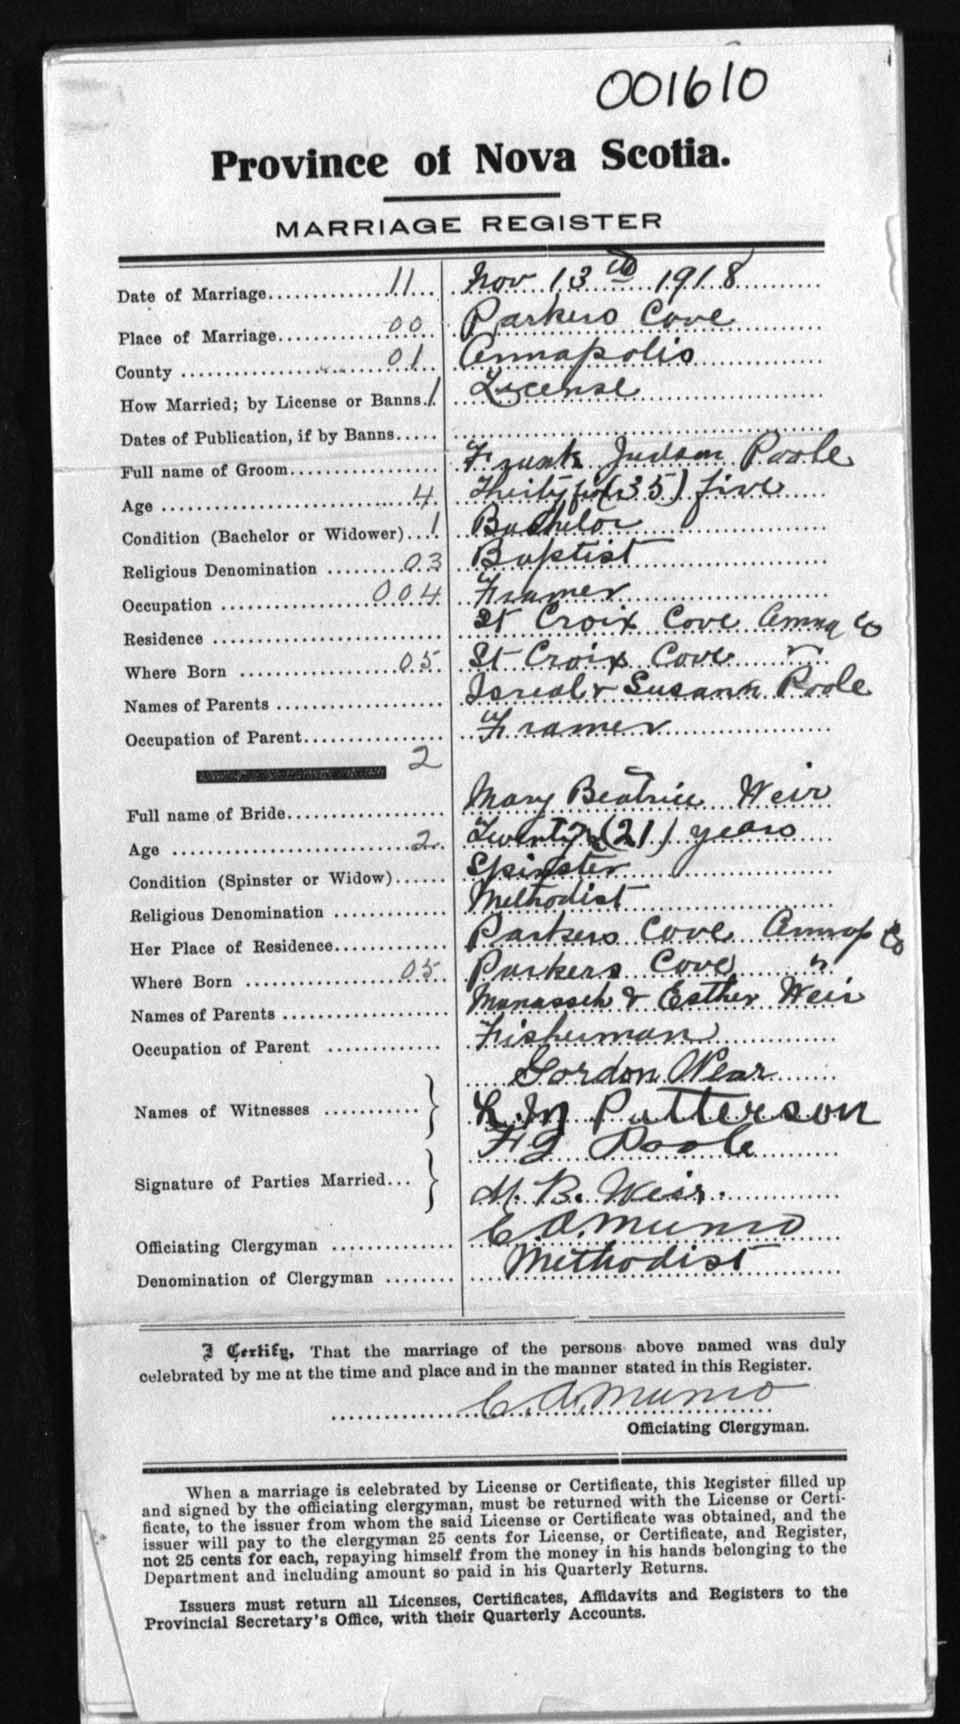 001610
Province of Nova Scotia.
MARRIAGE REGISTER
Date of Marriage 11 Nov 13th 1918
Place of Marriage 00 Parkers Cove
County 01 Annapolis
How Married; by License or Banns 1 License
Dates of Publication, if by Banns
Full name of Groom Frank Judson Poole
Age 4 Thirty (35) five
Condition (Bachelor or Widower) 1 Bachelor
Religious Denomination 03 Baptist
Occupation 004 Framer
Residence St Croix Cove Anna Co
Where Born 05 St Croix Cove "
Names of Parents Isreal & Susann Poole
Occupation of Parent Framer
2
Full name of Bride Mary Beatrice Weir
Age 2 Twenty (21) years
Condition (Spinster or Widow) Spinster
Religious Denomination Methodist
Her Place of Residence Parkers Cove Annap Co
Where Born 05 Parkers Cove "
Names of Parents Manasseh & Esther Weir
Occupation of Parent Fisherman
Gordon Wear
Names of Witnesses L. M Patterson
F J Poole
Signature of Parties Married M. B. Weir.
Officiating Clergyman C. A. Munro
Denomination of Clergyman Methodist
I Certify, That the marriage of the persons above named was duly
celebrated by me at the time and place and in the manner stated in this Register.
C. A. Munro
Officiating Clergyman.
When a marriage is celebrated by License or Certificate, this Register filled up
and signed by the officiating clergyman, must be returned with the License or Certi-
ficate, to the issuer from whom the said License or Certificate was obtained, and the
issuer will pay to the clergyman 25 cents for License, or Certificate, and Register,
not 25 cents for each, repaying himself from the money in his hands belonging to the
Department and including amount so paid in his Quarterly Returns.
Issuers must return all Licenses, Certificates, Affidavits and Registers to the
Provincial Secretary's Office, with their Quarterly Accounts.